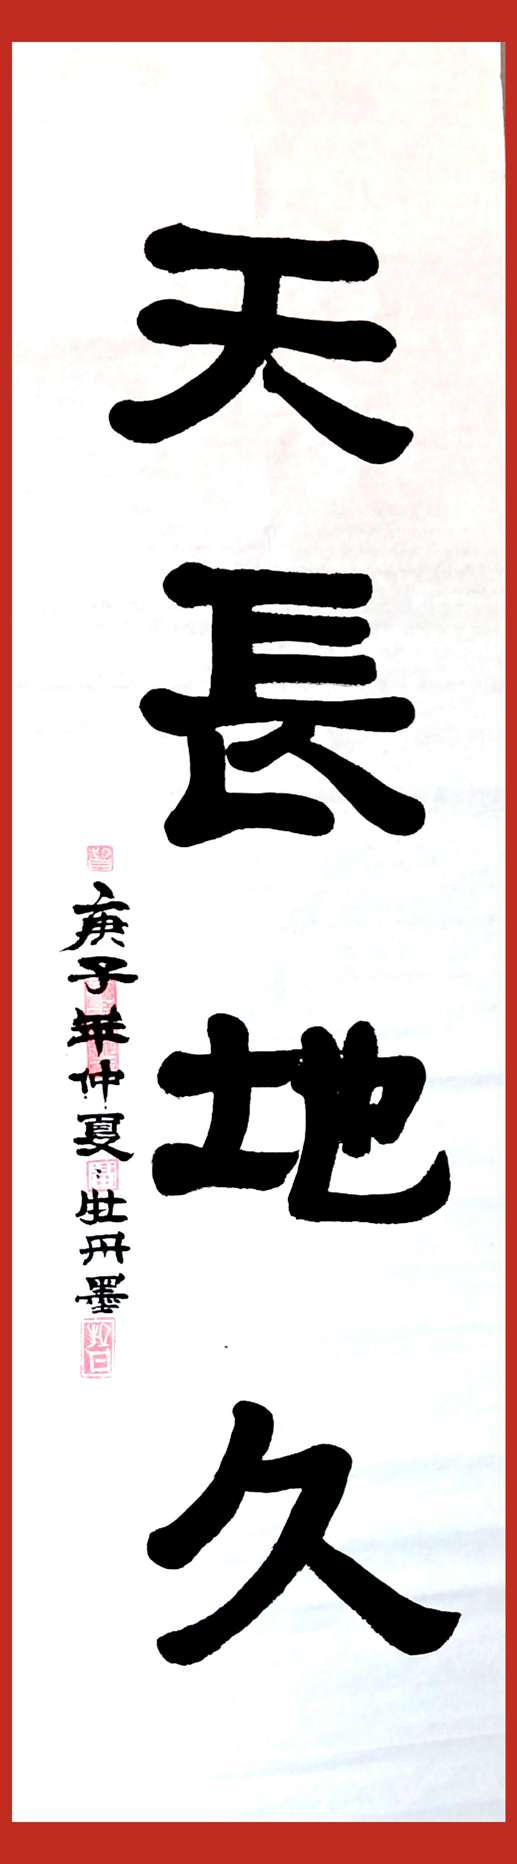 天長地久
庚子年仲夏牡丹墨